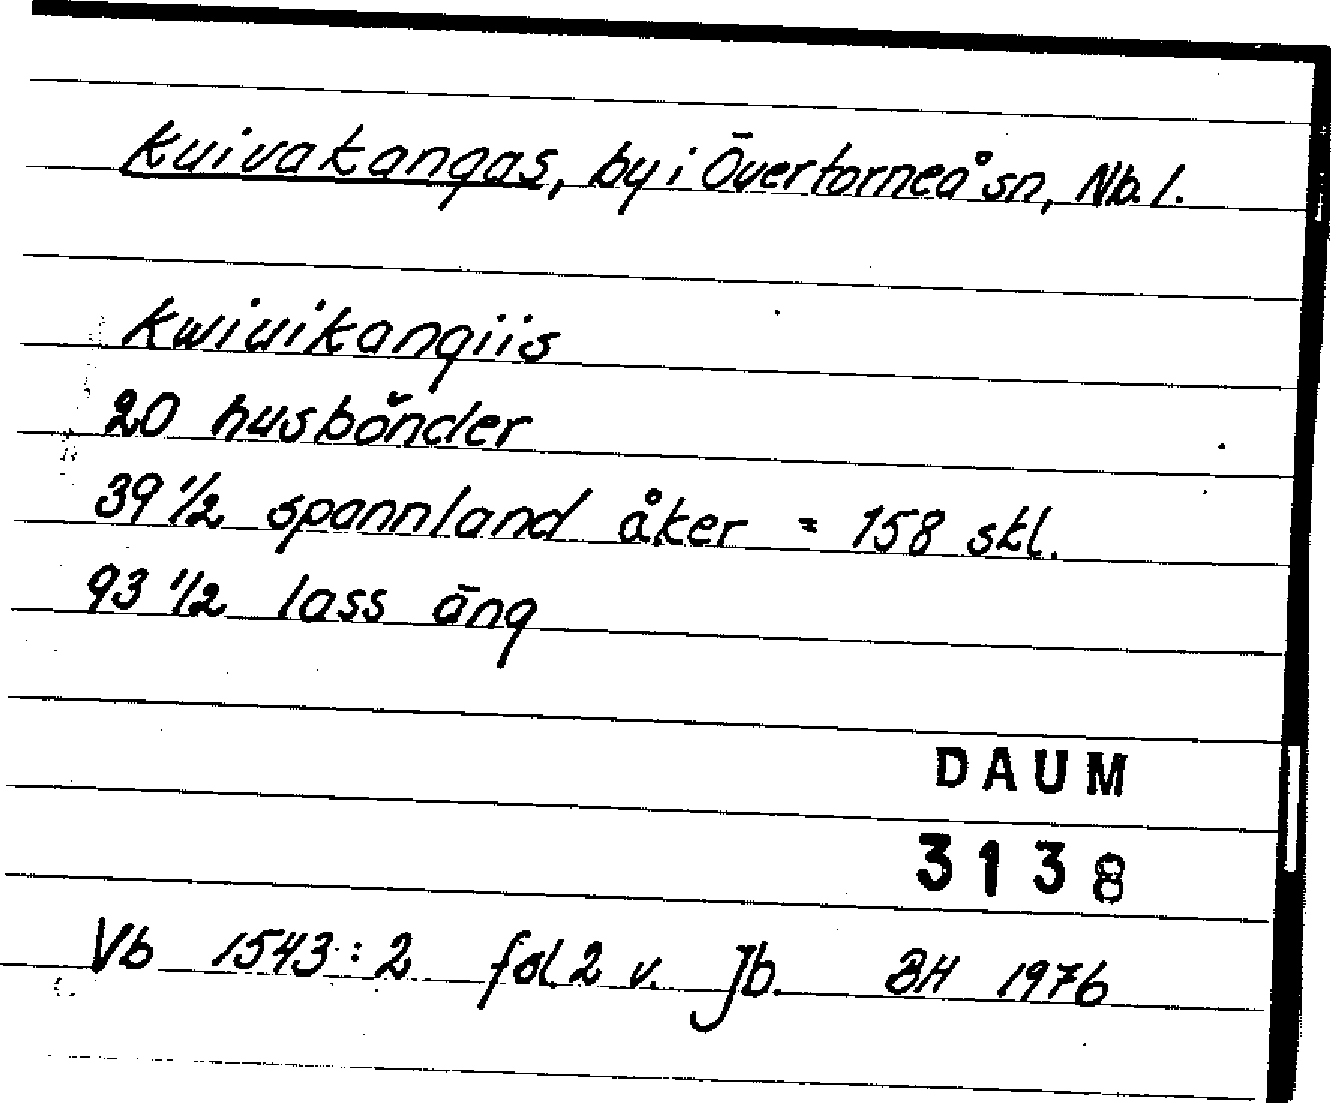 Kuivakangas, by i Övertorneå sn, Nb. l.
Kwiuikangiis
20 husbönder
39 1/2 spannland åker = 158 skl.
93 1/2 lass äng
DAUM
3138
Vb 1543:2 fol. 2 v. Jb. BH 1976